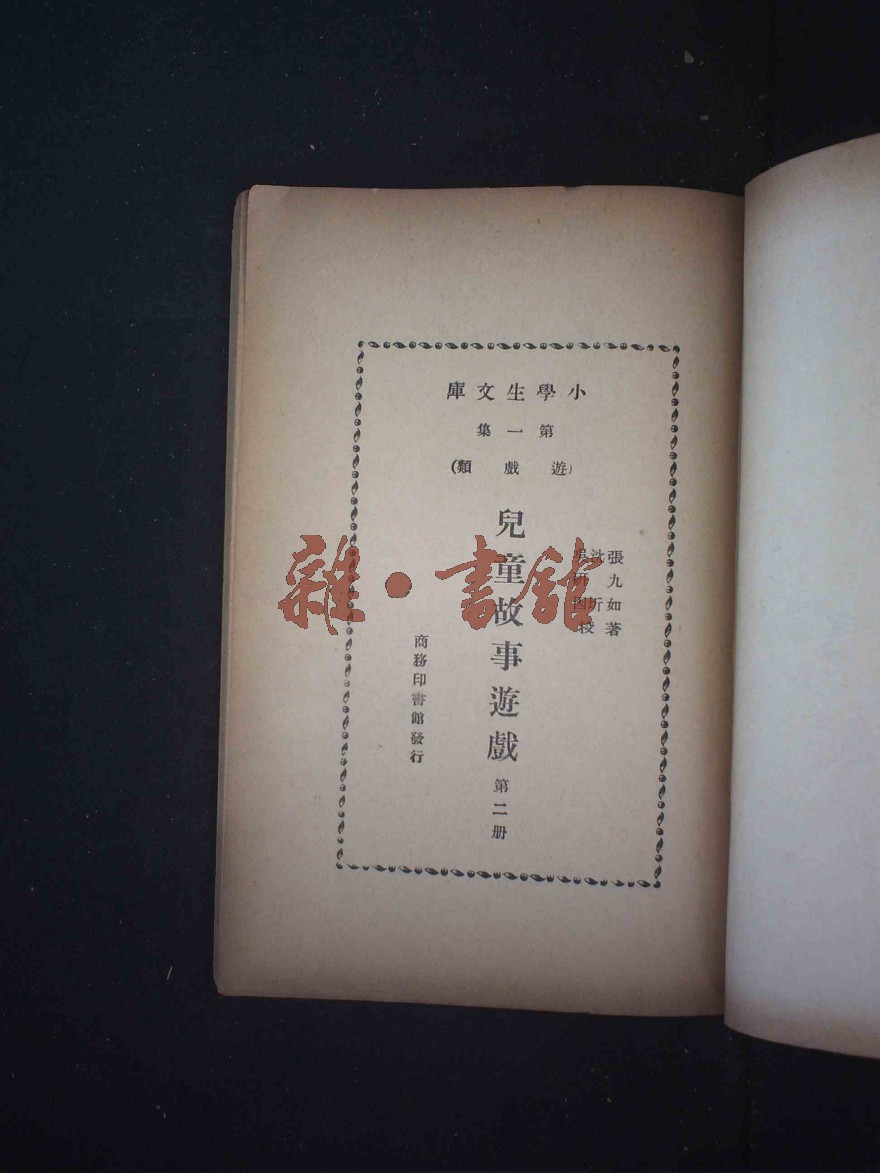 小學生文庫
第一集
(遊戲類)
張九如著
沈圻
吳研因校
兒童故事遊戲 第二册
商務印書館發行
雜·書館